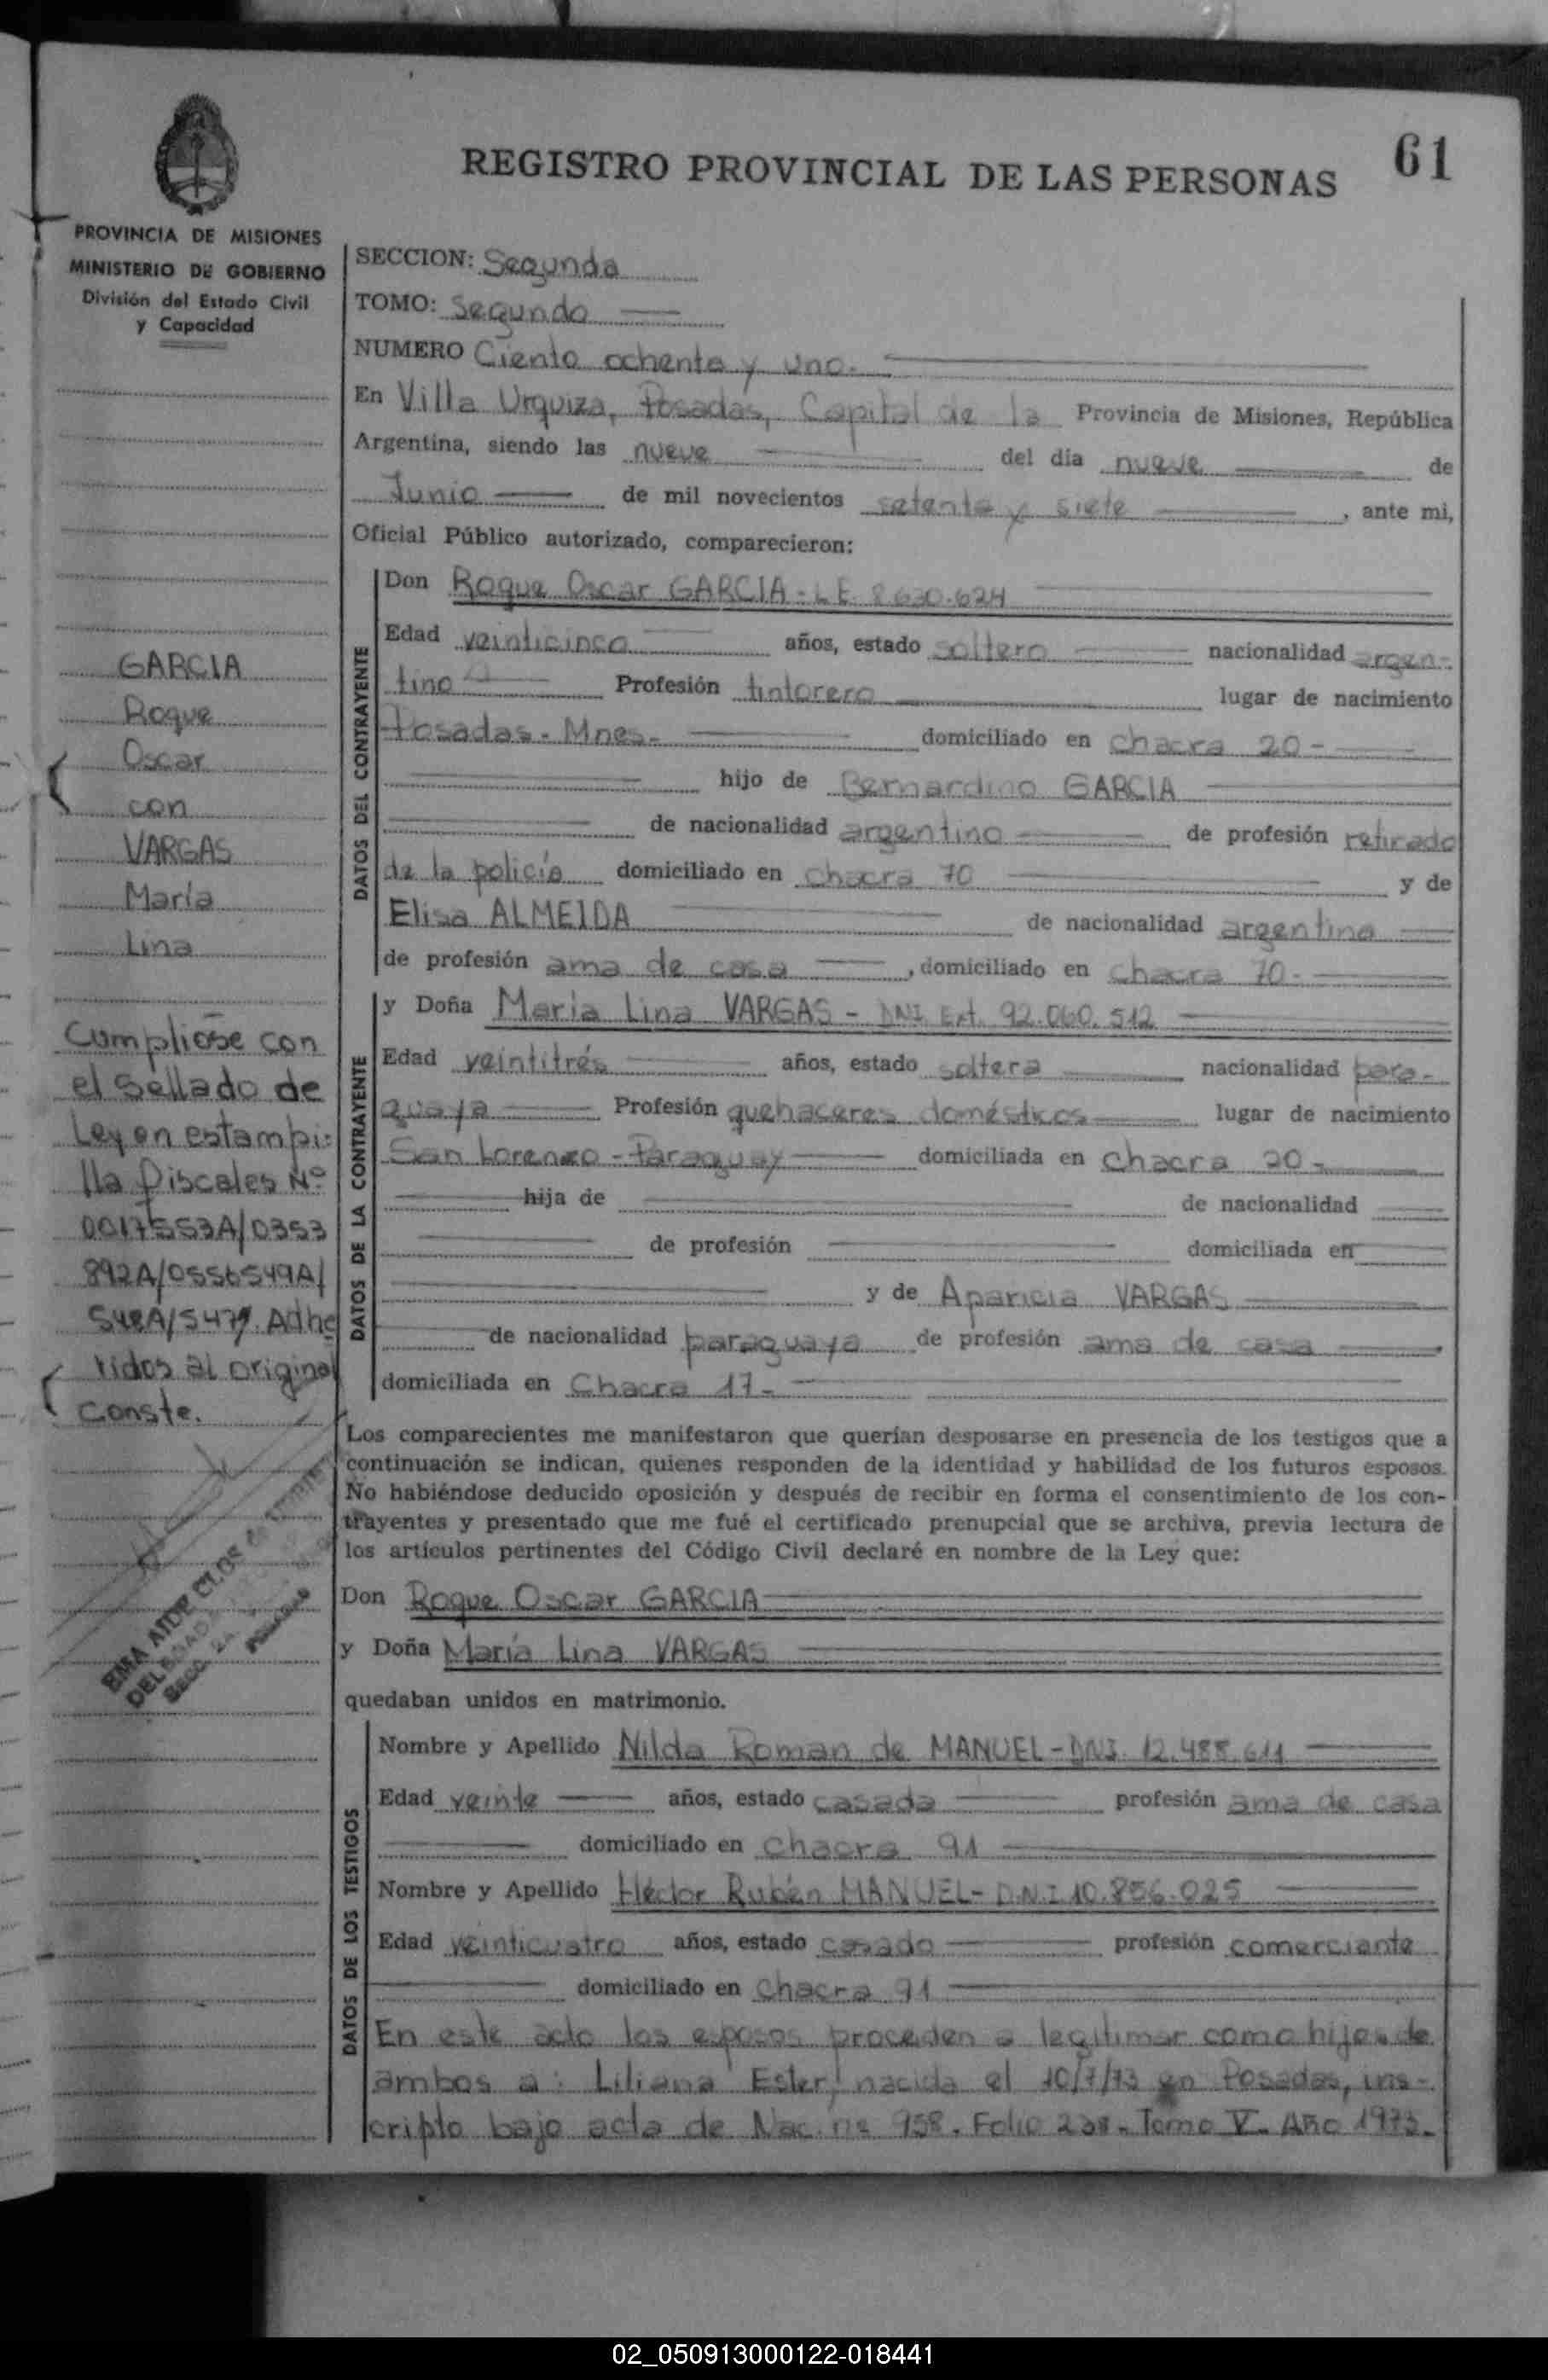 61
REGISTRO PROVINCIAL DE LAS PERSONAS
PROVINCIA DE MISIONES
MINISTERIO DE GOBIERNO
División del Estado Civil
y Capacidad
GARCIA
Roque
Oscar
con
VARGAS
María
Lina
Cumpliose con
el Sellado de
Ley en estampi-
lla fiscales Nº
0017553A/0353
892A/0556549A/
548A/547A. Adhe
ridos al original
Conste.
EMA AIDE CLOS
SECC. 2A. POSADAS
SECCION: Segunda
TOMO: Segundo
NUMERO Ciento ochenta y uno.
En Villa Urquiza, Posadas, Capital de la Provincia de Misiones, República
Argentina, siendo las nueve del día nueve de
Junio de mil novecientos setenta y siete, ante mi,
Oficial Público autorizado, comparecieron:
DATOS DEL CONTRAYENTE
Don Roque Oscar GARCIA - L.E. 8.630.624
Edad veinticinco años, estado soltero nacionalidad argen-
tino Profesión tintorero lugar de nacimiento
Posadas - Mnes. domiciliado en chacra 20 -
hijo de Bernardino GARCIA
de nacionalidad argentino de profesión retirado
de la policía domiciliado en chacra 70 y de
Elisa ALMEIDA de nacionalidad argentina
de profesión ama de casa, domiciliado en chacra 70 -
DATOS DE LA CONTRAYENTE
y Doña María Lina VARGAS - DNI Ext. 92.060.512
Edad veintitrés años, estado soltera nacionalidad para-
guaya Profesión quehaceres domésticos lugar de nacimiento
San Lorenzo - Paraguay domiciliada en chacra 20 -
hija de de nacionalidad
de profesión domiciliada en
y de Aparicia VARGAS
de nacionalidad paraguaya de profesión ama de casa
domiciliada en Chacra 17 -
Los comparecientes me manifestaron que querían desposarse en presencia de los testigos que a
continuación se indican, quienes responden de la identidad y habilidad de los futuros esposos.
No habiéndose deducido oposición y después de recibir en forma el consentimiento de los con-
trayentes y presentado que me fué el certificado prenupcial que se archiva, previa lectura de
los artículos pertinentes del Código Civil declaré en nombre de la Ley que:
Don Roque Oscar GARCIA
y Doña María Lina VARGAS
quedaban unidos en matrimonio.
DATOS DE LOS TESTIGOS
Nombre y Apellido Nilda Roman de MANUEL - DNI. 12.488.611
Edad veinte años, estado casada profesión ama de casa
domiciliado en chacra 91
Nombre y Apellido Héctor Rubén MANUEL - D.N.I 10.856.025
Edad veinticuatro años, estado casado profesión comerciante
domiciliado en Chacra 91
En este acto los esposos proceden a legitimar como hijos de
ambos a: Liliana Ester, nacida el 10/7/73 en Posadas, ins-
cripto bajo acta de Nac. nº 958. Folio 238 - Tomo V - Año 1973.
02_050913000122-018441